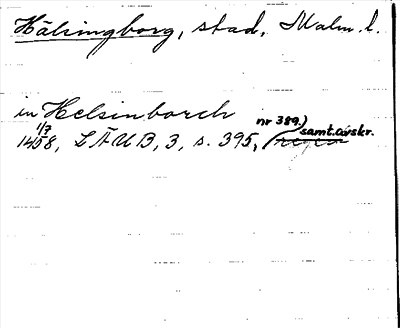 Hälsingborg, stad, Malm. l.
in Helsinborch
1/7 1408, LÄUB, 3, s. 395, nr 389.) samt. avskr.